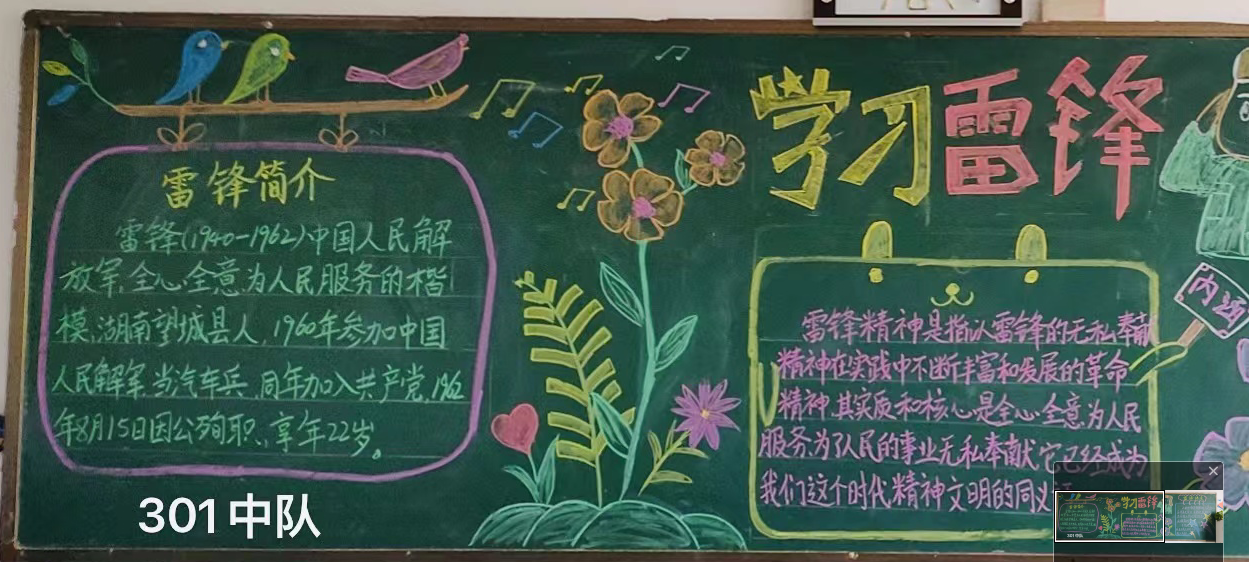 学习雷锋
雷锋简介
雷锋(1940-1962)中国人民解
放军.全心全意为人民服务的楷
模,湖南望城县人,1960年参加中国
人民解军.当汽车兵.同年加入共产党,1962
年8月15日因公殉职、享年22岁。
雷锋精神是指以雷锋的无私奉献
精神在实践中不断丰富和发展的革命
精神.其实质和核心是全心全意为人民
服务.为了人民的事业无私奉献.它已经成为
我们这个时代精神文明的同义
内涵
301中队